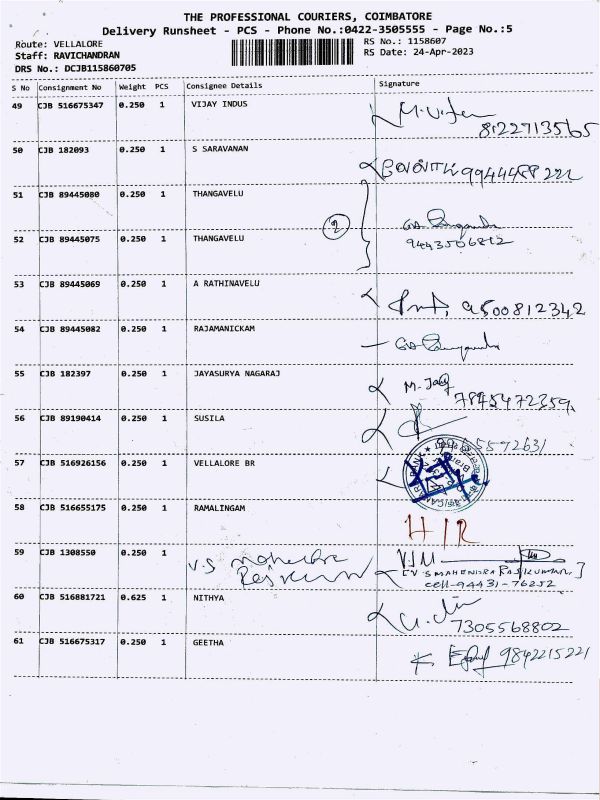 THE PROFESSIONAL COURIERS, COIMBATORE
Delivery Runsheet - PCS - Phone No.:0422-3505555 - Page No.:5
Route: VELLALORE
RS No.: 1158607
Staff: RAVICHANDRAN
RS Date: 24-Apr-2023
DRS No.: DCJB115860705
S No Consignment No Weight PCS Consignee Details Signature
49 CJB 516675347 0.250 1 VIJAY INDUS
8122713565
50 CJB 182093 0.250 1 S SARAVANAN
51 CJB 89445080 0.250 1 THANGAVELU
2
52 CJB 89445075 0.250 1 THANGAVELU
9443506812
53 CJB 89445069 0.250 1 A RATHINAVELU
9500812342
54 CJB 89445082 0.250 1 RAJAMANICKAM
55 CJB 182397 0.250 1 JAYASURYA NAGARAJ
7845472359
56 CJB 89190414 0.250 1 SUSILA
57 CJB 516926156 0.250 1 VELLALORE BR
58 CJB 516655175 0.250 1 RAMALINGAM
59 CJB 1308550 0.250 1 V.S
[V S MAHENDRA RAJKUMAR]
cell-94431-76252
60 CJB 516881721 0.625 1 NITHYA
7305568802
61 CJB 516675317 0.250 1 GEETHA
9842215221